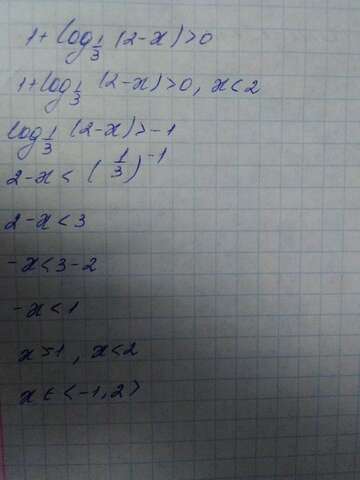 1+log_{1/3} (2-x)>0
1+log_{1/3} (2-x)>0, x<2
log_{1/3} (2-x)>-1
2-x < (1/3)^{-1}
2-x<3
-x<3-2
-x<1
x>1, x<2
x∈<-1,2>